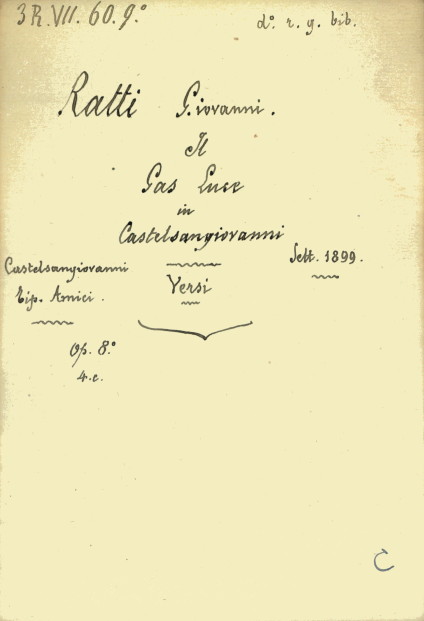 3R.VII. 60. 9.°
d°. r. g. bib.
Ratti Giovanni.
Il
Gas Luce
in
Castelsangiovanni
Sett. 1899.
Castelsangiovanni
Tip. Amici.
Versi
Op. 8.°
4.c.
C